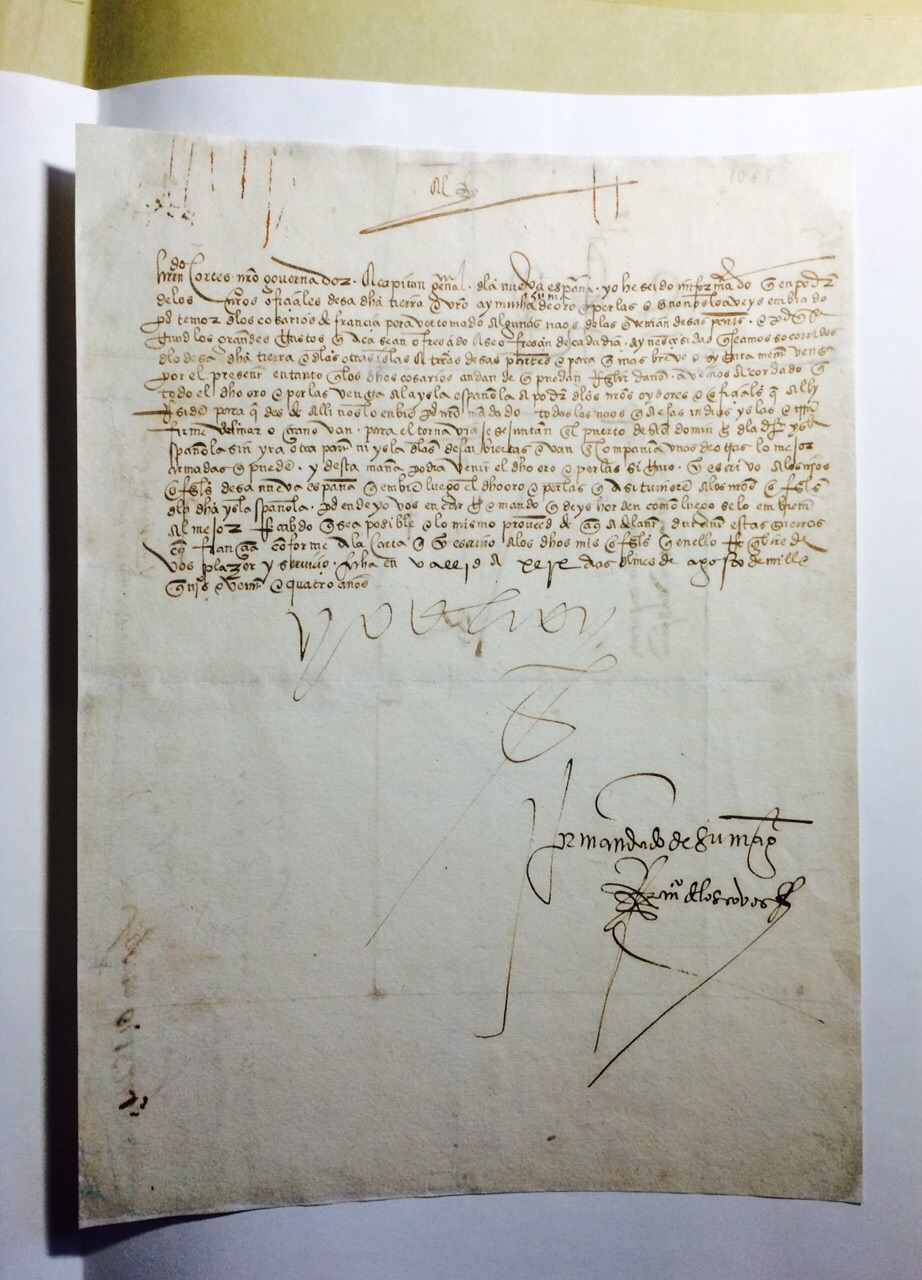 El Rey
hern̄do Cortes nr̄o governador . E capitan gen̄al . dla nueva españa . yo he seido informado q̄ en poder
de los nr̄os ofiçiales desa dh̄a tierra q̄ vro ay mucha suma de oro e perlas q̄ no nos lo aveys embiado
por temor dlos cosarios de françia por aver tomado algunas naos de las q̄ venian desas partes . e
los grandes gastos q̄ aca sean ofreçido e se ofreçen de cada dia . ay neçesidad q̄ seamos socorridos
dlo desa dh̄a tierra e dlas otras islas e tr̄ras desas partes e para q̄ mas breve venga
por el presente entanto q̄ los dhos cosarios andan de q̄ puedan Reçibir daño . avemos acordado q̄
todo el dho oro e perlas venga ala ysla española a poder dlos nr̄os oydores e ofiçiales q̄ alli
Residē para q̄ desde alli nos lo enbiē por mi mandado todos los naos q̄ de las indias yslas e trr̄a
firme van . para el torna viaje se juntan en el puerto de sto domingo dla dha ysla
española sin yr a otra parte ni ysla dlas descubiertas e van en compania unos de otros lo mejor
armadas q̄ puedē . y desta mañ̄a podra venir el dho oro e perlas . yo escrivo alos nr̄os
ofiçiales desa nueva españa q̄ embiē luego el dho oro e perlas q̄ asi tuvierē alos nr̄os ofiçiales
dla dha ysla española . por ende yo vos encargo e mando q̄ deys horden como luego se lo embien
al mejor Recabdo q̄ sea posible e lo mismo proveed de aq̄ adelante durante estas guerras
con françia conforme ala carta q̄ yo escrivo alos dhos mis ofiçiales q̄ enello Reçibire de
vos plazer y serviçio . fecha en vallid a xxix dias dl mes de agosto de mill e
quis e veinte e quatro años
yo el Rey
por mandado de su mag
franco de los covos